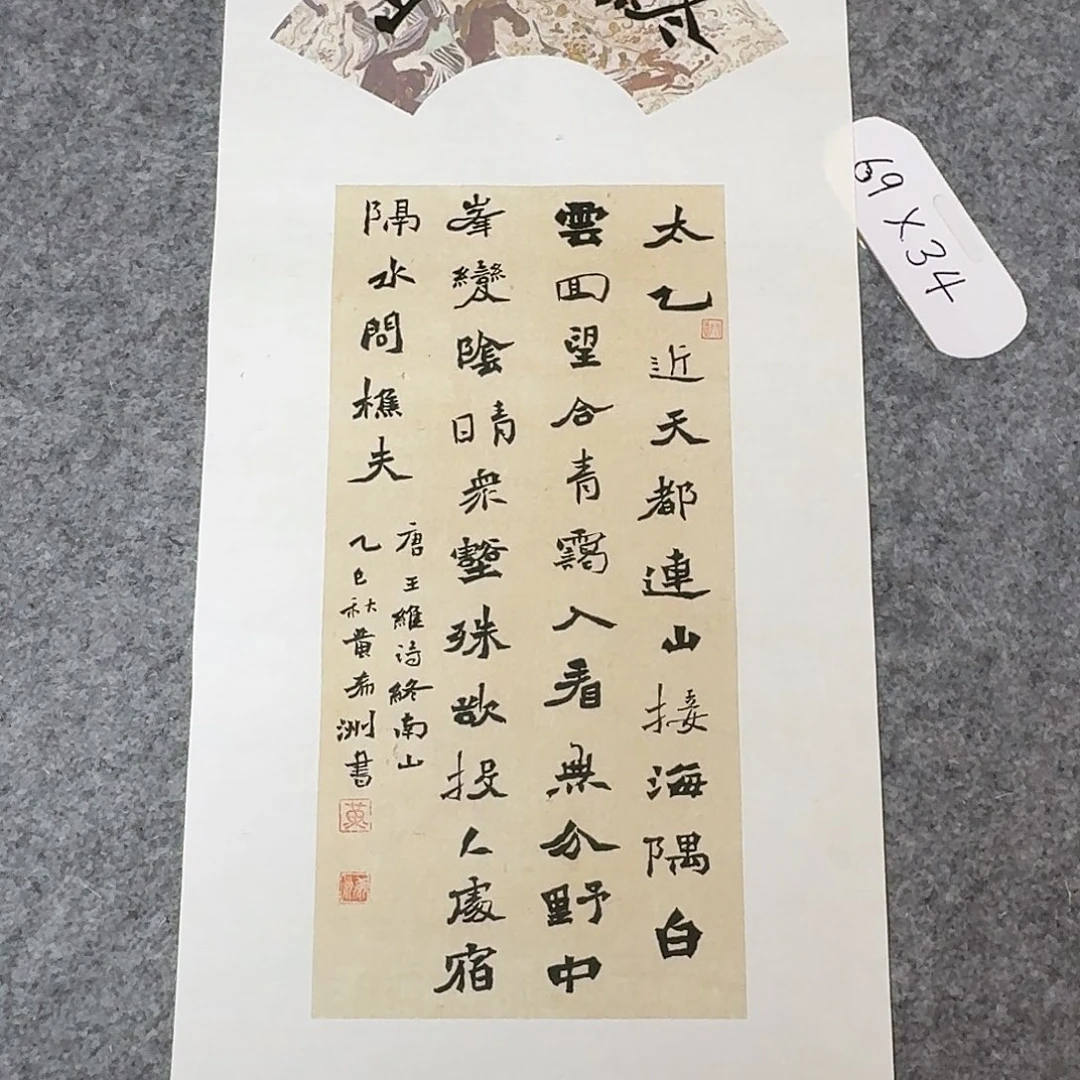 太乙近天都連山接海隅白
雲回望合青靄入看無分野中
峯變陰晴衆壑殊欲投人處宿
隔水問樵夫
唐王維詩終南山
乙巳秋黄希洲書
黄
69×34